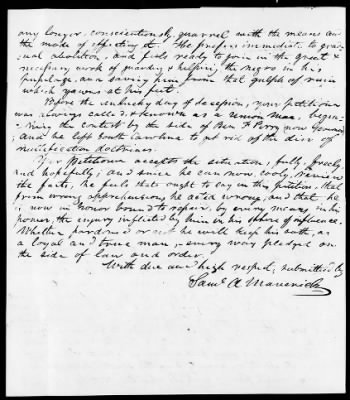 any longer, conscientiously, quarrel with the means or
the mode of effecting it. He prefers immediate to grad-
ual abolition, and feels ready to join in the great &
necessary work of guarding & helping the negro in his
pupilage, and saving him from that gulph of ruin
which yawns at his feet.
Before the unlucky day of secession, your petitioner
was always called, & known as a union man, begin-
ning the contest by the side of Ben F Perry now Governor
and he left South Carolina to get rid of the din of
nullification doctrines.
Your Petitioner accepts the situation, fully, freely
and hopefully; and since he can now, cooly, review
the facts, he feels that ought to say in this petition, that
from wrong apprehensions he acted wrong, and that he
is now in honor bound to repair, by every means in his
power, the injury inflicted by him in his sphere of influence.
Whether pardoned or not he will keep his oath, as
a loyal and true man, every way pledged on
the side of law and order.
With due and high respect, submitted by
Saml A Maverick